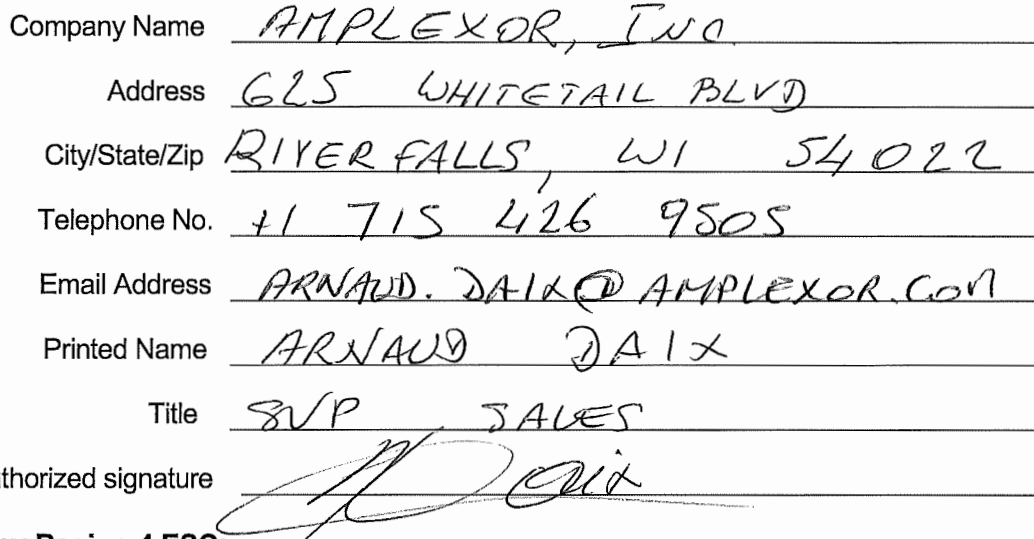 Company Name AMPLEXOR, INC.
Address 625 WHITETAIL BLVD
City/State/Zip RIVER FALLS, WI 54022
Telephone No. +1 715 426 9505
Email Address ARNAUD.DAIX@AMPLEXOR.COM
Printed Name ARNAUD DAIX
Title SVP SALES
uthorized signature Daix